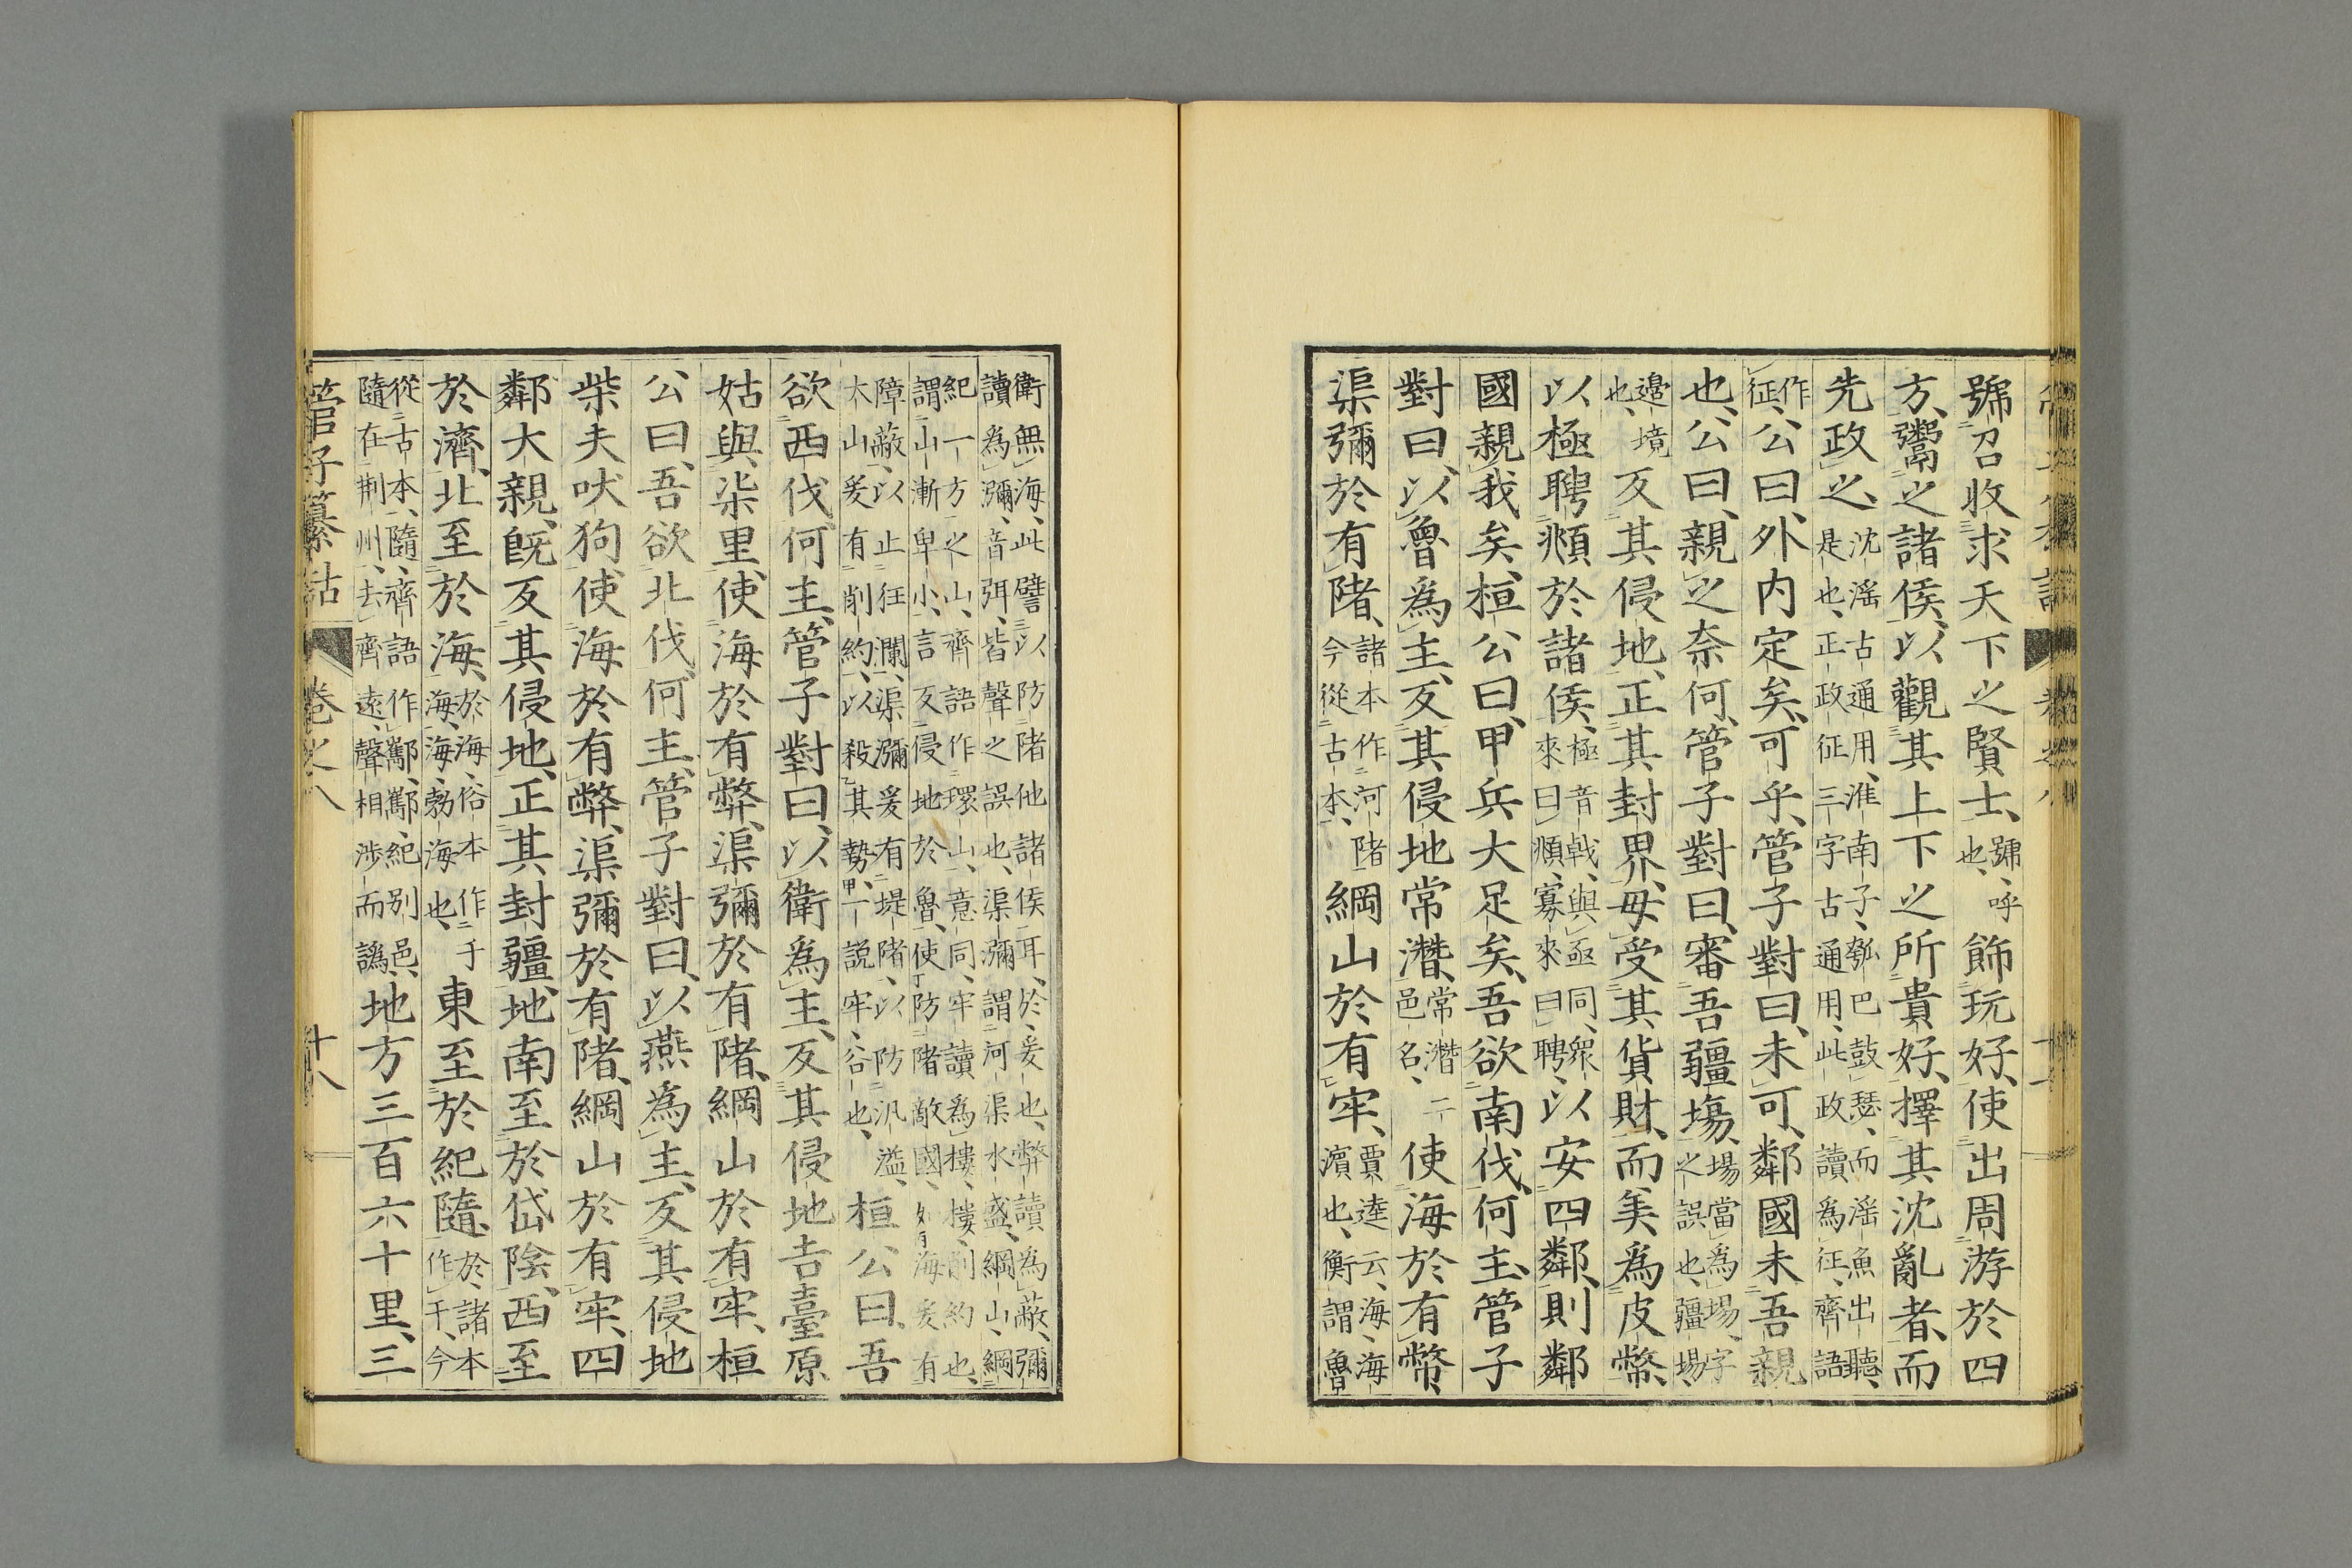 號召收求天下之賢士、號、呼也、飾玩好、使出周游於四
方、鬻之諸侯、以觀其上下之所貴好、擇其沈亂者、而
先政之、沈滛古通用、淮南子、瓠巴鼓瑟、而滛魚出聽、是也、正政征三字古通用、此政讀為征、齊語
作征、公曰、外内定矣、可乎、管子對曰、未可、鄰國未吾親
也、公曰、親之奈何、管子對曰、審吾疆塲、塲當為埸、字之誤也、疆埸、
邉境也、反其侵地、正其封界、毋受其貨財、而美為皮幣、
以極聘頫於諸侯、極音㦸、與亟同、衆來曰頫、寡來曰聘、以安四鄰、則鄰
國親我矣、桓公曰、甲兵大足矣、吾欲南伐、何主、管子
對曰、以魯為主、反其侵地常濳、常濳二邑名、使海於有幣、
渠彌於有陼、諸本作河陼今從古本、綱山於有牢、賈逵云、海、海濵也、衡謂魯
衛無海、此譬以防陼他諸侯耳、於、爰也、弊讀為蔽、彌
讀為瀰、音弭、皆聲之誤也、渠瀰、謂河渠水盛、綱山、綱
紀一方之山、齊語作環山、意同、牢讀為樓、樓、削約也、
謂山漸卑小、言反侵地於魯、使防陼敵國、如有海爰有
障蔽、以止狂瀾、渠瀰爰有堤陼、以防汎溢、
大山爰有削約、以殺其勢甲、一説牢、谷也、桓公曰、吾
欲西伐、何主、管子對曰、以衛為主、反其侵地吉臺原
姑與柒里、使海於有弊、渠彌於有陼、綱山於有牢、桓
公曰、吾欲北伐、何主、管子對曰、以燕為主、反其侵地
柴夫吠狗、使海於有弊、渠彌於有陼、綱山於有牢、四
鄰大親、旣反其侵地、正其封疆、地南至於岱陰、西至
於濟、北至於海、於海、俗本作于海、海、勃海也、東至於紀隨、於、諸本作于、今
從古本、隨、齊語作酅、酅、紀别邑、隨在荆州、去齊遠、聲相渉而譌、地方三百六十里、三
管子纂詁 卷之八 十八